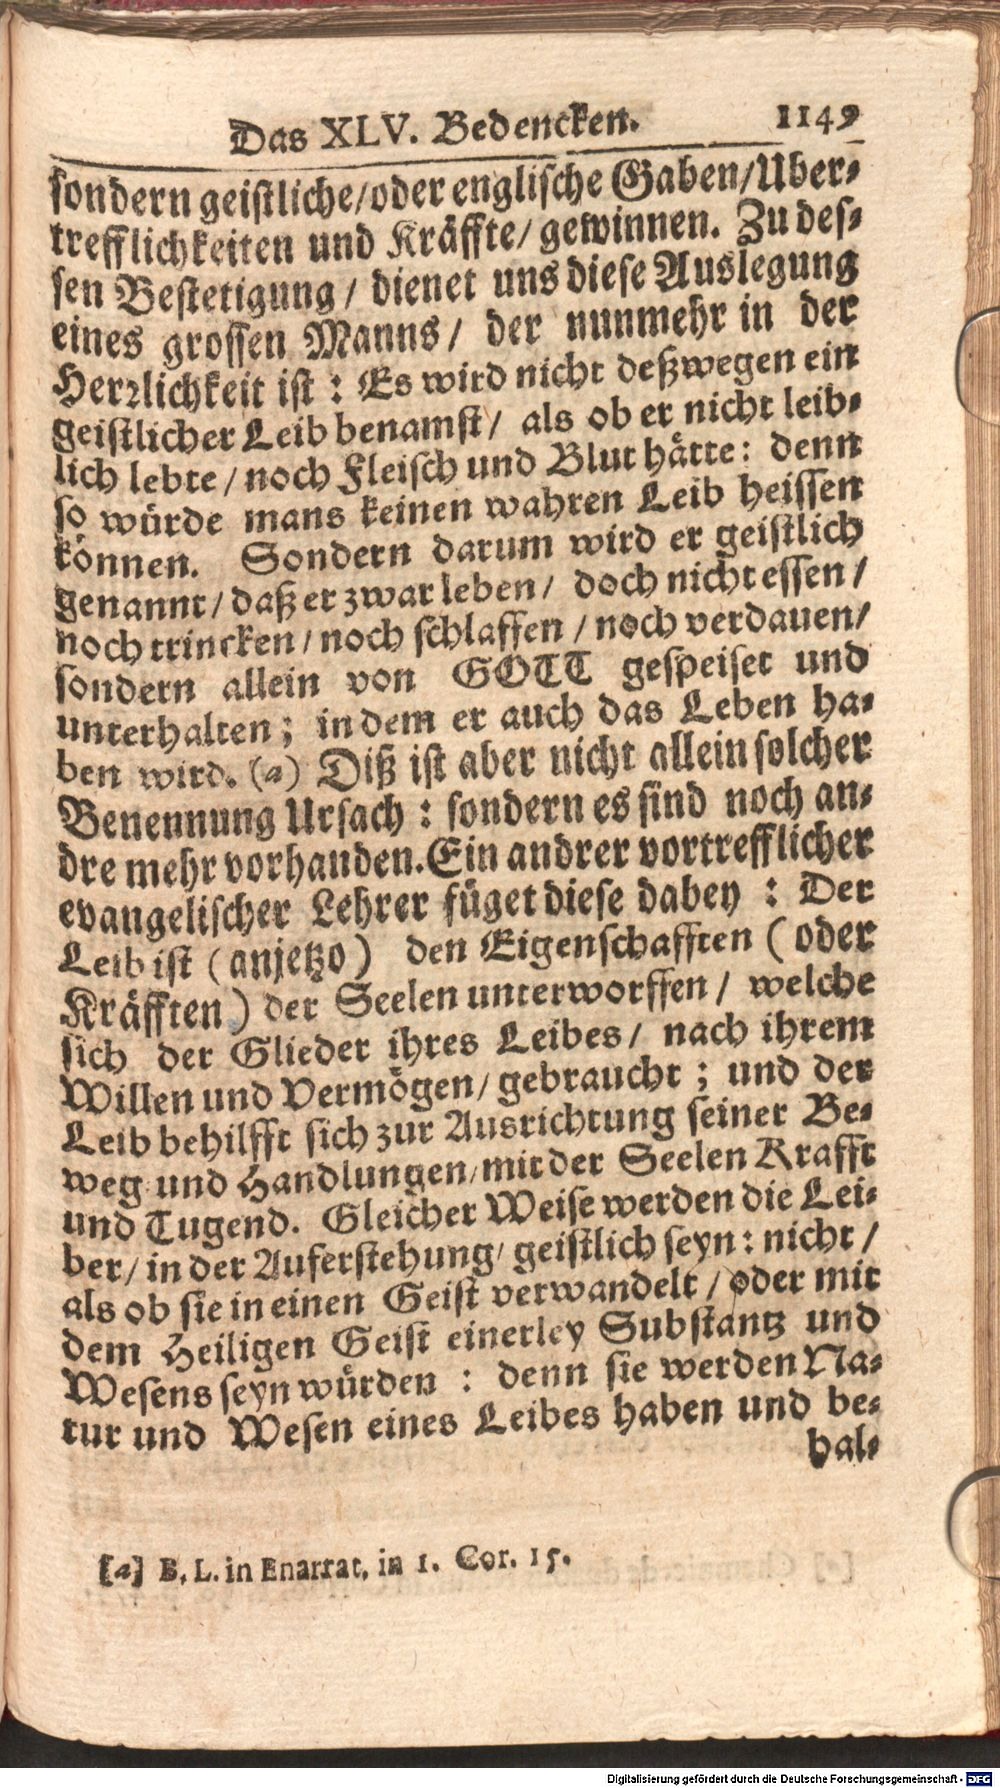 Das XLV. Bedencken. 1149
sondern geistliche/oder englische Gaben/Uber-
trefflichkeiten und Kräffte/ gewinnen. Zu des-
sen Bestetigung / dienet uns diese Auslegung
eines grossen Manns/ der nunmehr in der
Herꝛlichkeit ist : Es wird nicht deßwegen ein
geistlicher Leib benamst/ als ob er nicht leib-
lich lebte / noch Fleisch und Blut hätte: denn
so würde mans keinen wahren Leib heissen
können. Sondern darum wird er geistlich
genannt/ daß er zwar leben/ doch nicht essen/
noch trincken/ noch schlaffen / noch verdauen/
sondern allein von GOTT gespeiset und
unterhalten; in dem er auch das Leben ha-
ben wird. (a) Diß ist aber nicht allein solcher
Benennung Ursach : sondern es sind noch an-
dre mehr vorhanden. Ein andrer vortrefflicher
evangelischer Lehrer füget diese dabey : Der
Leib ist (anjetzo) den Eigenschafften (oder
Kräfften) der Seelen unterworffen / welche
sich der Glieder ihres Leibes/ nach ihrem
Willen und Vermögen/ gebraucht ; und der
Leib behilfft sich zur Ausrichtung seiner Be-
weg- und Handlungen/ mit der Seelen Krafft
und Tugend. Gleicher Weise werden die Lei-
ber/ in der Auferstehung/ geistlich seyn: nicht/
als ob sie in einen Geist verwandelt / oder mit
dem Heiligen Geist einerley Substantz und
Wesens seyn würden : denn sie werden Na-
tur und Wesen eines Leibes haben und be-
hal-
[a] B. L. in Enarrat. in 1. Cor. 15.
Digitalisierung gefördert durch die Deutsche Forschungsgemeinschaft - DFG